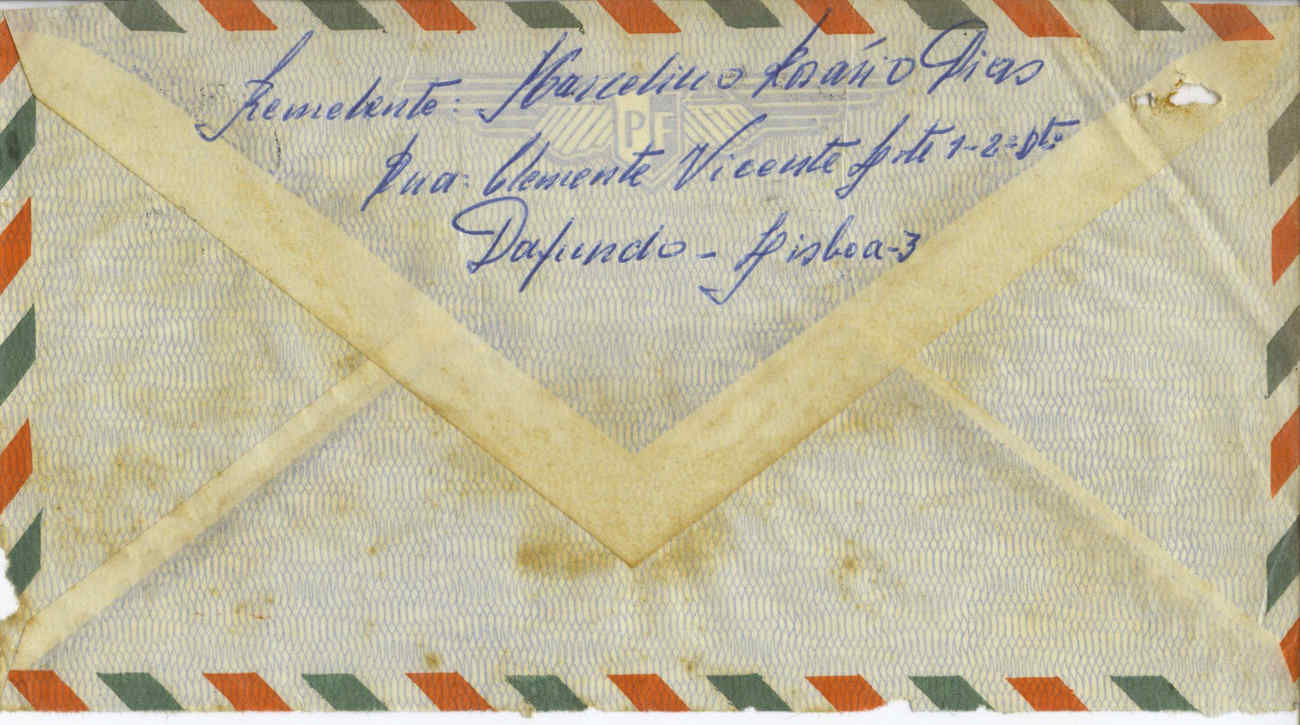 Remetente: Marcelino Rosário Dias
PF
Rua: Clemente Vicente Lote 1-2º Dtº
Dafundo - Lisboa-3